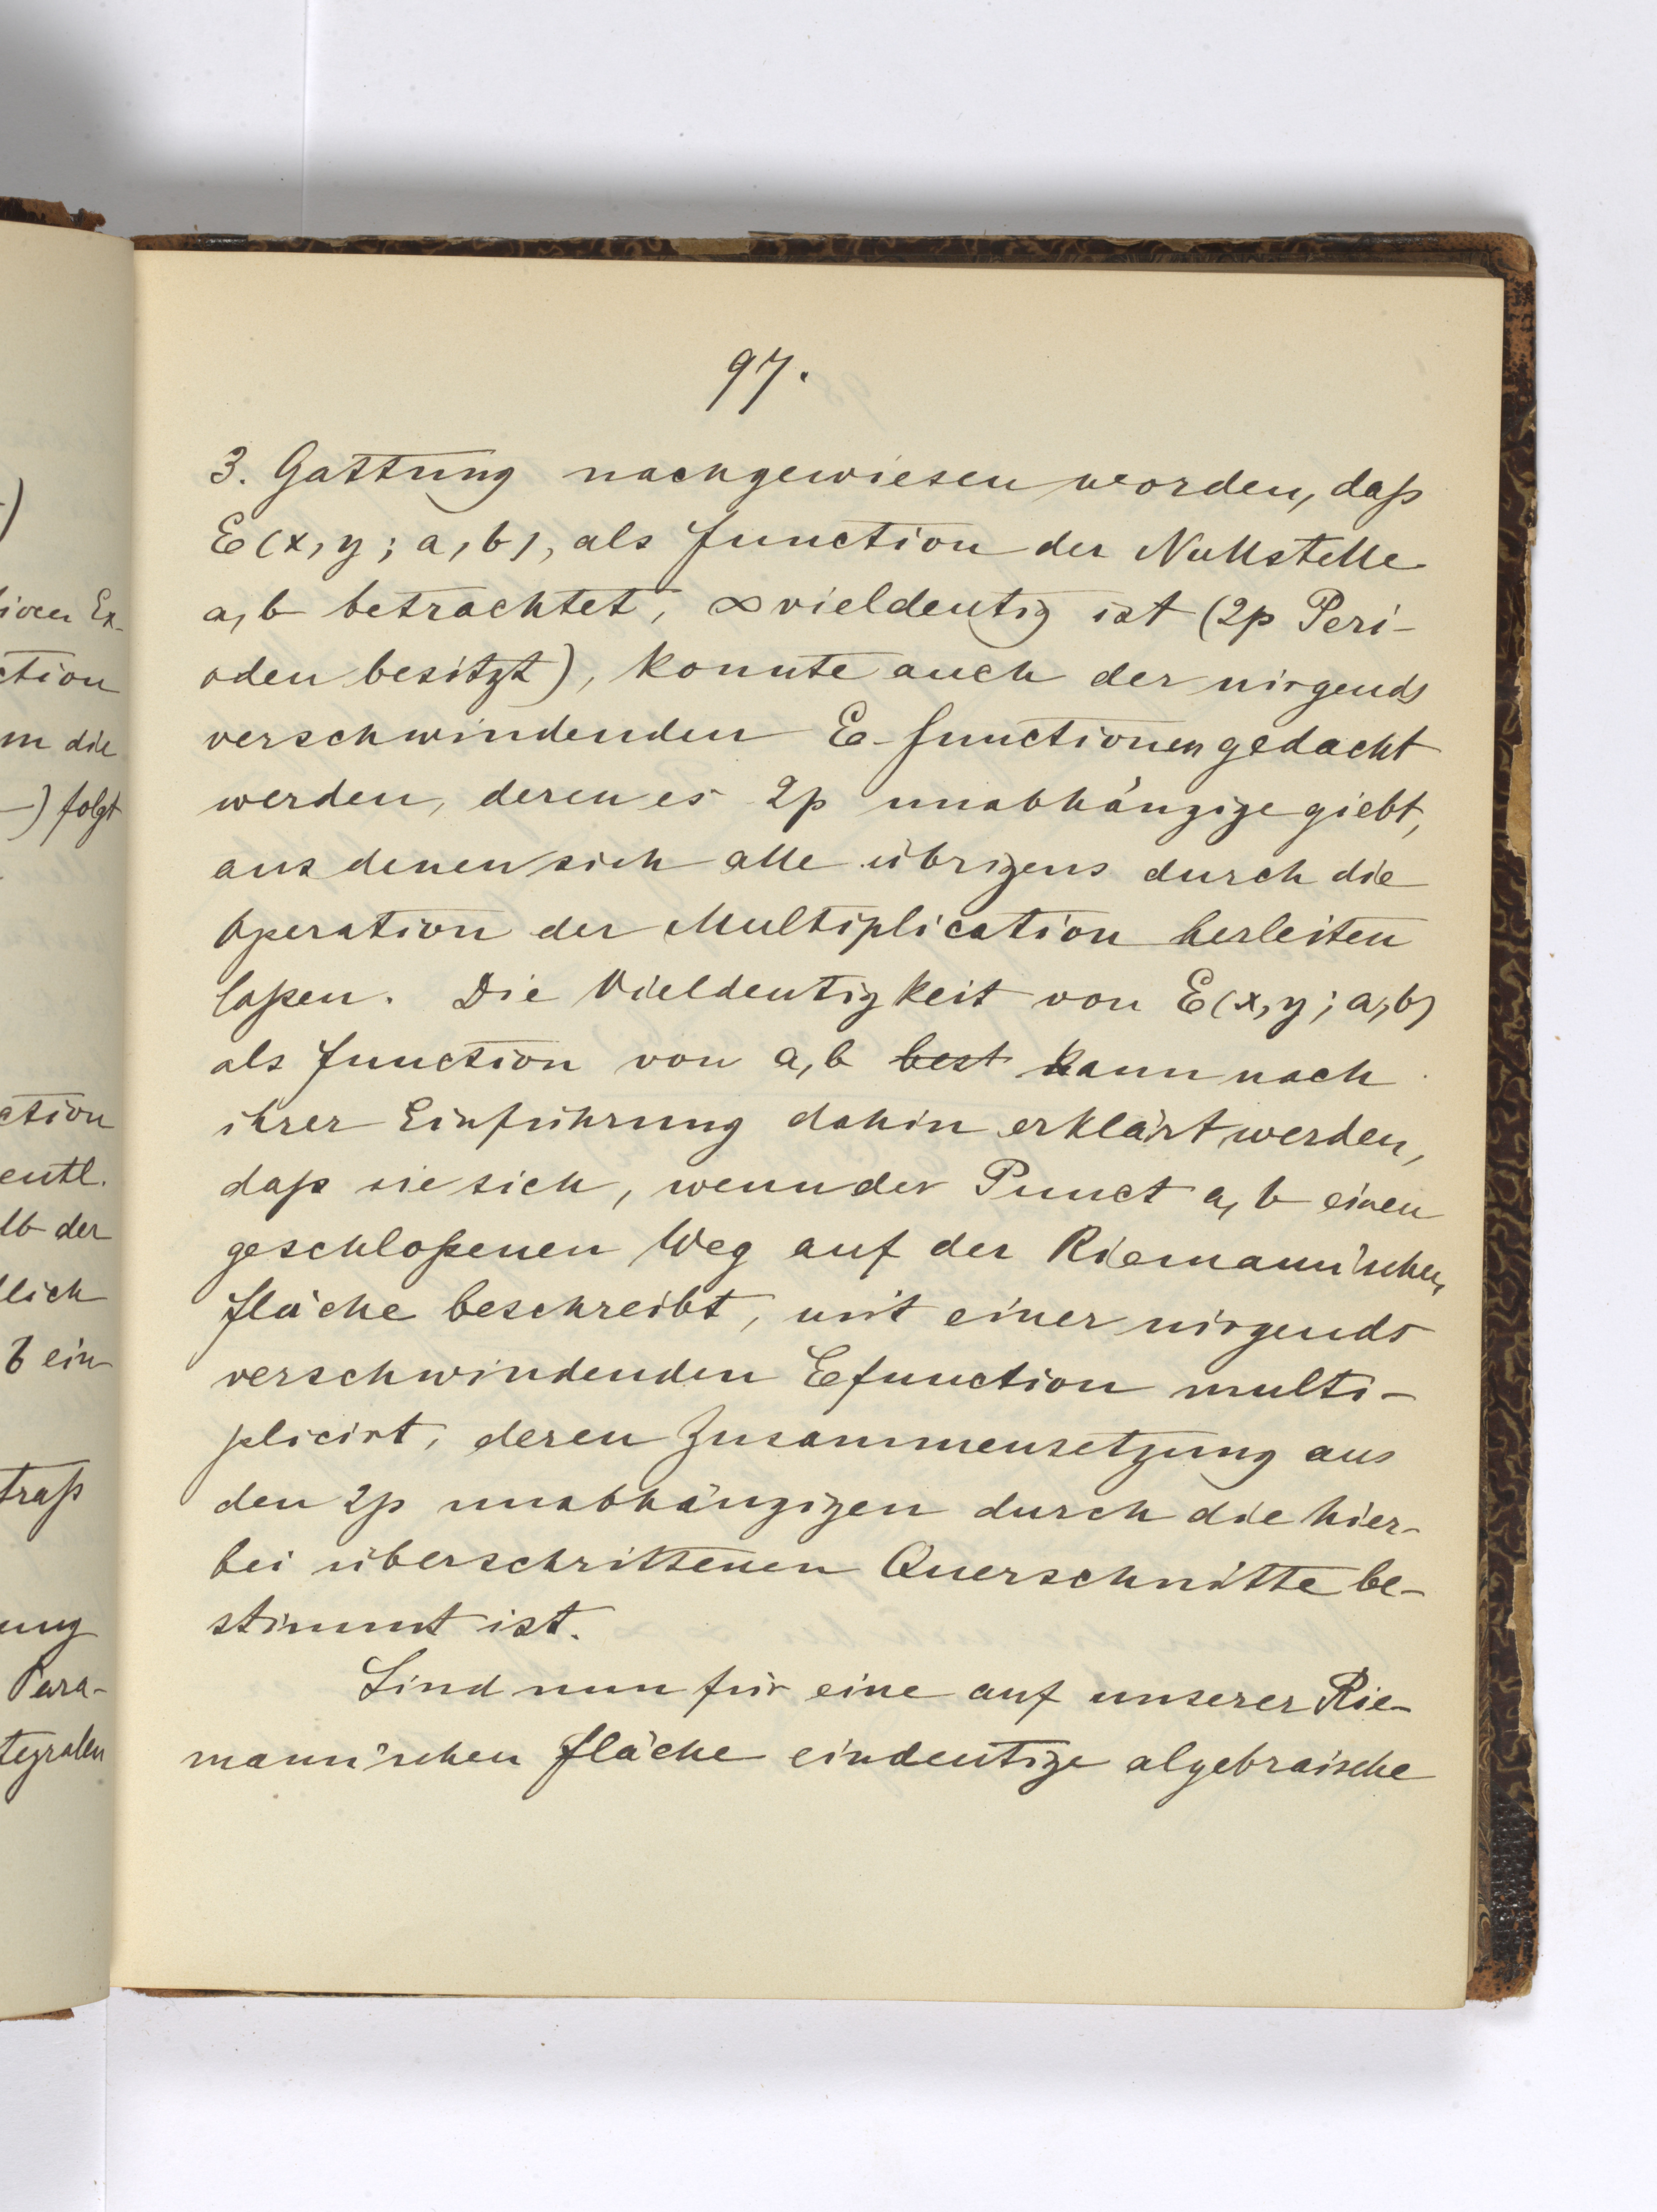 97.
3. Gattung nachgewiesen worden, daß
E(x, y; a, b), als Function der Nullstelle
a, b betrachtet, ∞vieldeutig ist (2p Peri-
oden besitzt), konnte auch der nirgends
verschwindenden E-Functionen gedacht
werden, deren es 2p unabhängige giebt,
aus denen sich alle übrigens durch die
Operation der Multiplication herleiten
laßen. Die Vieldeutigkeit von E(x, y; a, b)
als Function von a, b best kann nach
ihrer Einführung dahin erklärt werden,
daß sie sich, wenn der Punct a, b einen
geschloßenen Weg auf der Riemann'schen
Fläche beschreibt, mit einer nirgends
verschwindenden Efunction multi-
plicirt, deren Zusammensetzung aus
den 2p unabhängigen durch die hier-
bei überschrittenen Querschnitte be-
stimmt ist.
Sind nun für eine auf unserer Rie-
mann'schen Fläche eindeutige algebraische
)
ction
m die
) folgt
ction
entl.
lb der
lich
ein
traß
ung
Para-
tegralen